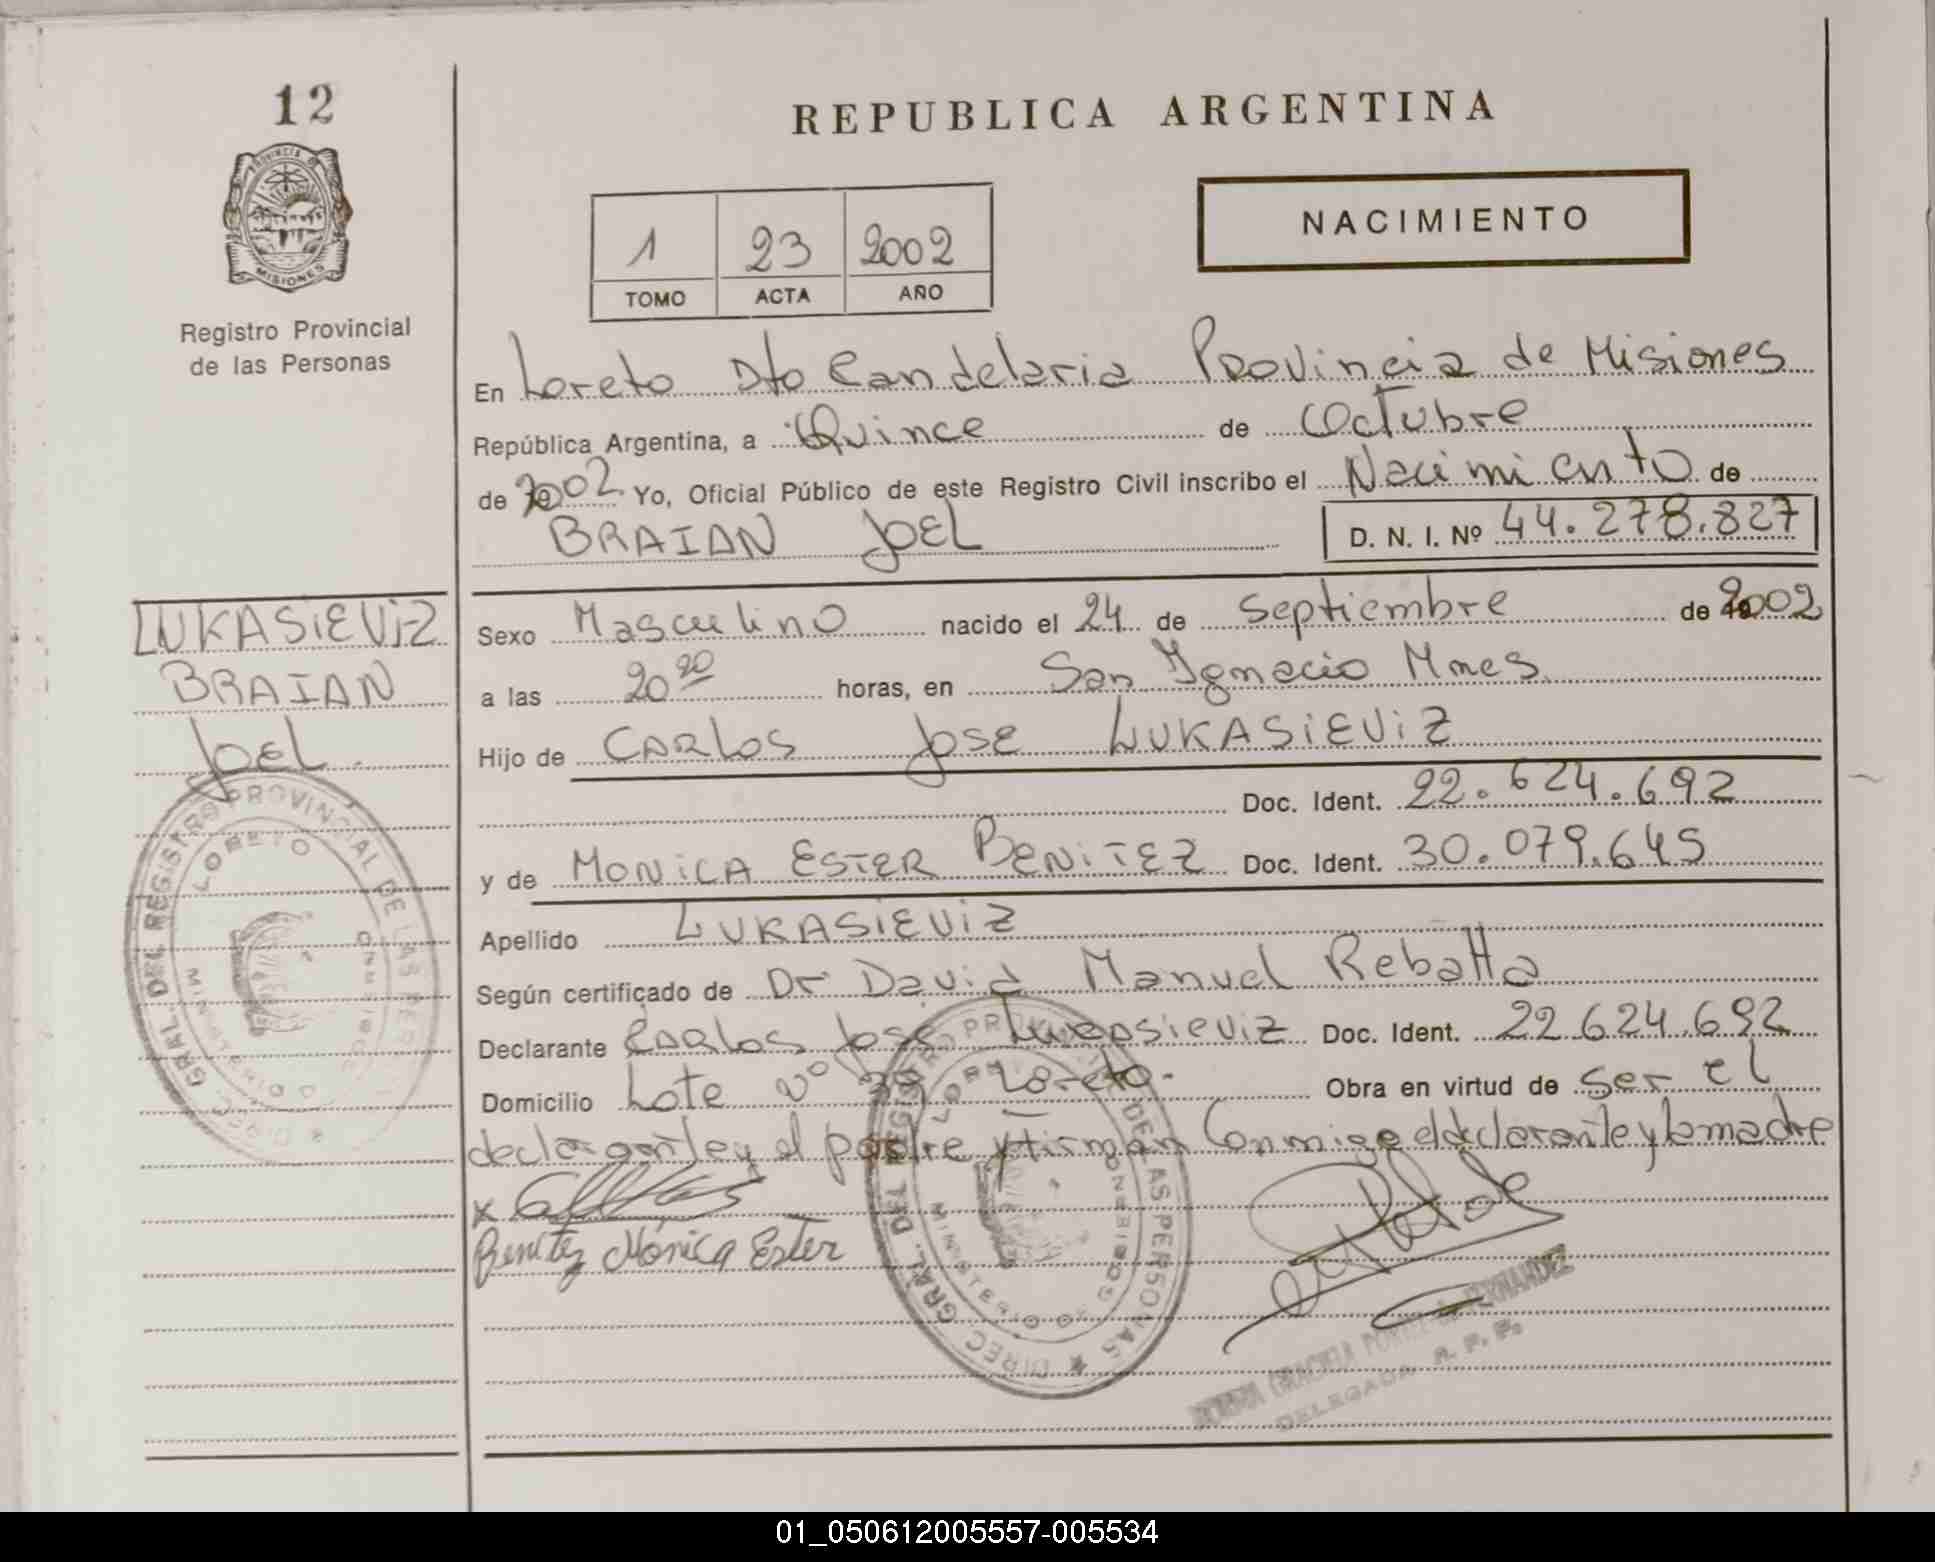 12
REPUBLICA ARGENTINA
PROVINCIA DE
MISIONES
Registro Provincial
de las Personas
NACIMIENTO
1 23 2002
TOMO ACTA AÑO
En Loreto Dto Candelaria Provincia de Misiones
República Argentina, a Quince de Octubre
de 2002 Yo, Oficial Público de este Registro Civil inscribo el Nacimiento de
BRAIAN JOEL D. N. I. Nº 44.278.827
LUKASiEViZ
BRAIAN
JOEL
Sexo Masculino nacido el 24 de Septiembre de 2002
a las 20 20 horas, en San Ignacio Mnes
Hijo de CARLOS JOSE LUKASiEViZ
Doc. Ident. 22.624.692
y de MONiCA ESTER BENiTEZ Doc. Ident. 30.079.645
Apellido LUKASIEViZ
Según certificado de Dr David Manuel Rebatta
Declarante CARLOS José Lukasieviz Doc. Ident. 22624.692
Domicilio Lote Nº Loreto. Obra en virtud de ser el
declarante y el padre y firman Conmigo el declarante y la madre
x
Benitez Mónica Ester
DIREC. GRAL. DEL REGISTRO PROVINCIAL DE LAS PERSONAS
LORETO
MINISTERIO DE
DIREC GRAL. DEL REGISTRO PROVINCIAL DE LAS PERSONAS
LORETO
MINISTERIO DE
GRACIELA FERNANDEZ
DELEGADA R. P. P.
01_050612005557-005534